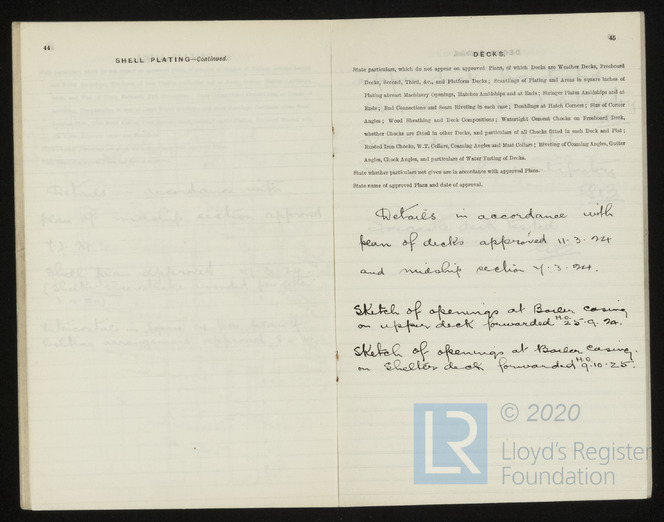 44
SHELL PLATING—Continued.
45
DECKS.
State particulars, which do not appear on approved Plans, of which Decks are Weather Decks, Freeboard
Decks, Second, Third, &c., and Platform Decks; Scantlings of Plating and Areas in square inches of
Plating abreast Machinery Openings, Hatches Amidships and at Ends; Stringer Plates Amidships and at
Ends; End Connections and Seam Riveting in each case; Doublings at Hatch Corners; Size of Corner
Angles; Wood Sheathing and Deck Compositions; Watertight Cement Chocks on Freeboard Deck,
whether Chocks are fitted in other Decks, and particulars of all Chocks fitted in each Deck and Flat;
Rusted Iron Chocks, W.T. Collars, Coaming Angles and Mast Collars; Riveting of Coaming Angles, Gutter
Angles, Chock Angles, and particulars of Water Testing of Decks.
State whether particulars not given are in accordance with approved Plans.
State name of approved Plans and date of approval.
Details in accordance with
plan of decks approved 11.3.24
and midship section 7.3.24.
Sketch of openings at Boiler casing
on upper deck forwarded H.O. 25.9.24.
Sketch of openings at Boiler casing.
on Shelter deck forwarded H.O. 9.10.25.
LR
© 2020
Lloyd's Register
Foundation